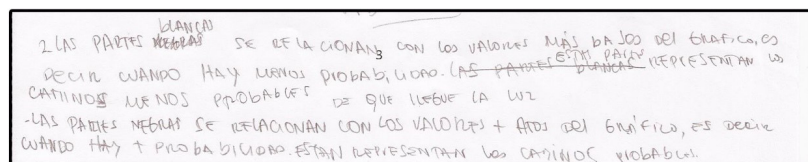 BLANCAS
2 LAS PARTES NEGRAS SE RELACIONAN 3 CON LOS VALORES MÁS BAJOS DEL GRÁFICO, ES
DECIR CUANDO HAY MENOS PROBABILIDAD. LAS PARTES BLANCAS REPRESENTAN LOS
CAMINOS MENOS PROBABLES DE QUE LLEGUE LA LUZ
-LAS PARTES NEGRAS SE RELACIONAN CON LOS VALORES + ATOS DEL GRÁFICO, ES DECIR
CUANDO HAY + PROBABILIDAD. ESTAN REPRESENTAN LOS CAMINOS PROBABLES.